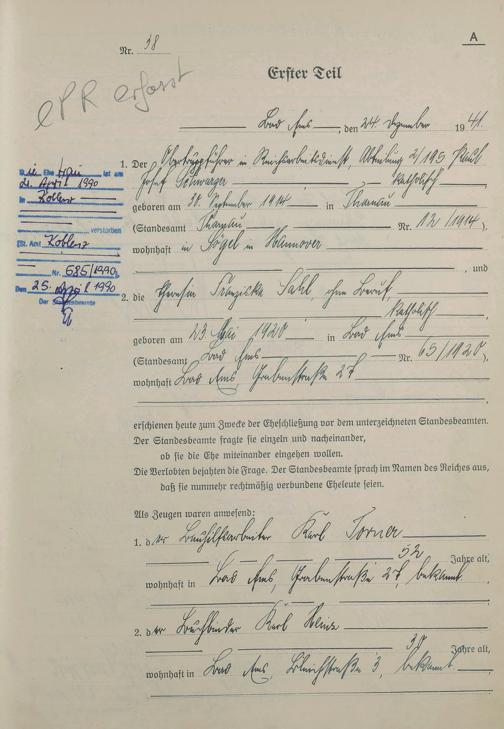 A
Nr. 38
Erster Teil
ePR erfasst
Bad Ems, den 24. Dezember 1941.
1. Der Obertruppführer im Reichsarbeitsdienst, Abteilung 2/195 Paul
Josef Schwarzer
Katholisch
geboren am September 1914 in
(Standesamt Nr. 12/1914),
wohnhaft in Sögel in Hannover
, und
2. die Theresia Franziska ohne Beruf,
Katholisch
geboren am 23. Mai 1920 in Bad Ems
(Standesamt Bad Ems Nr. 65/1920),
wohnhaft Bad Ems, Grabenstraße 27
Die Ehefrau ist am
24. April 1990
in Koblenz
verstorben
(St. Amt Koblenz
Nr. 685/1990)
Den 25. April 1990
Der Standesbeamte
erschienen heute zum Zwecke der Eheschließung vor dem unterzeichneten Standesbeamten.
Der Standesbeamte fragte sie einzeln und nacheinander,
ob sie die Ehe miteinander eingehen wollen.
Die Verlobten bejahten die Frage. Der Standesbeamte sprach im Namen des Reiches aus,
daß sie nunmehr rechtmäßig verbundene Eheleute seien.
Als Zeugen waren anwesend:
1. der Bauhilfsarbeiter Karl
52 Jahre alt,
wohnhaft in Bad Ems, Grabenstraße 27, bekannt
2. der Buchbinder Karl Heinz
30 Jahre alt,
wohnhaft in Bad Ems, Bleichstraße 3, bekannt